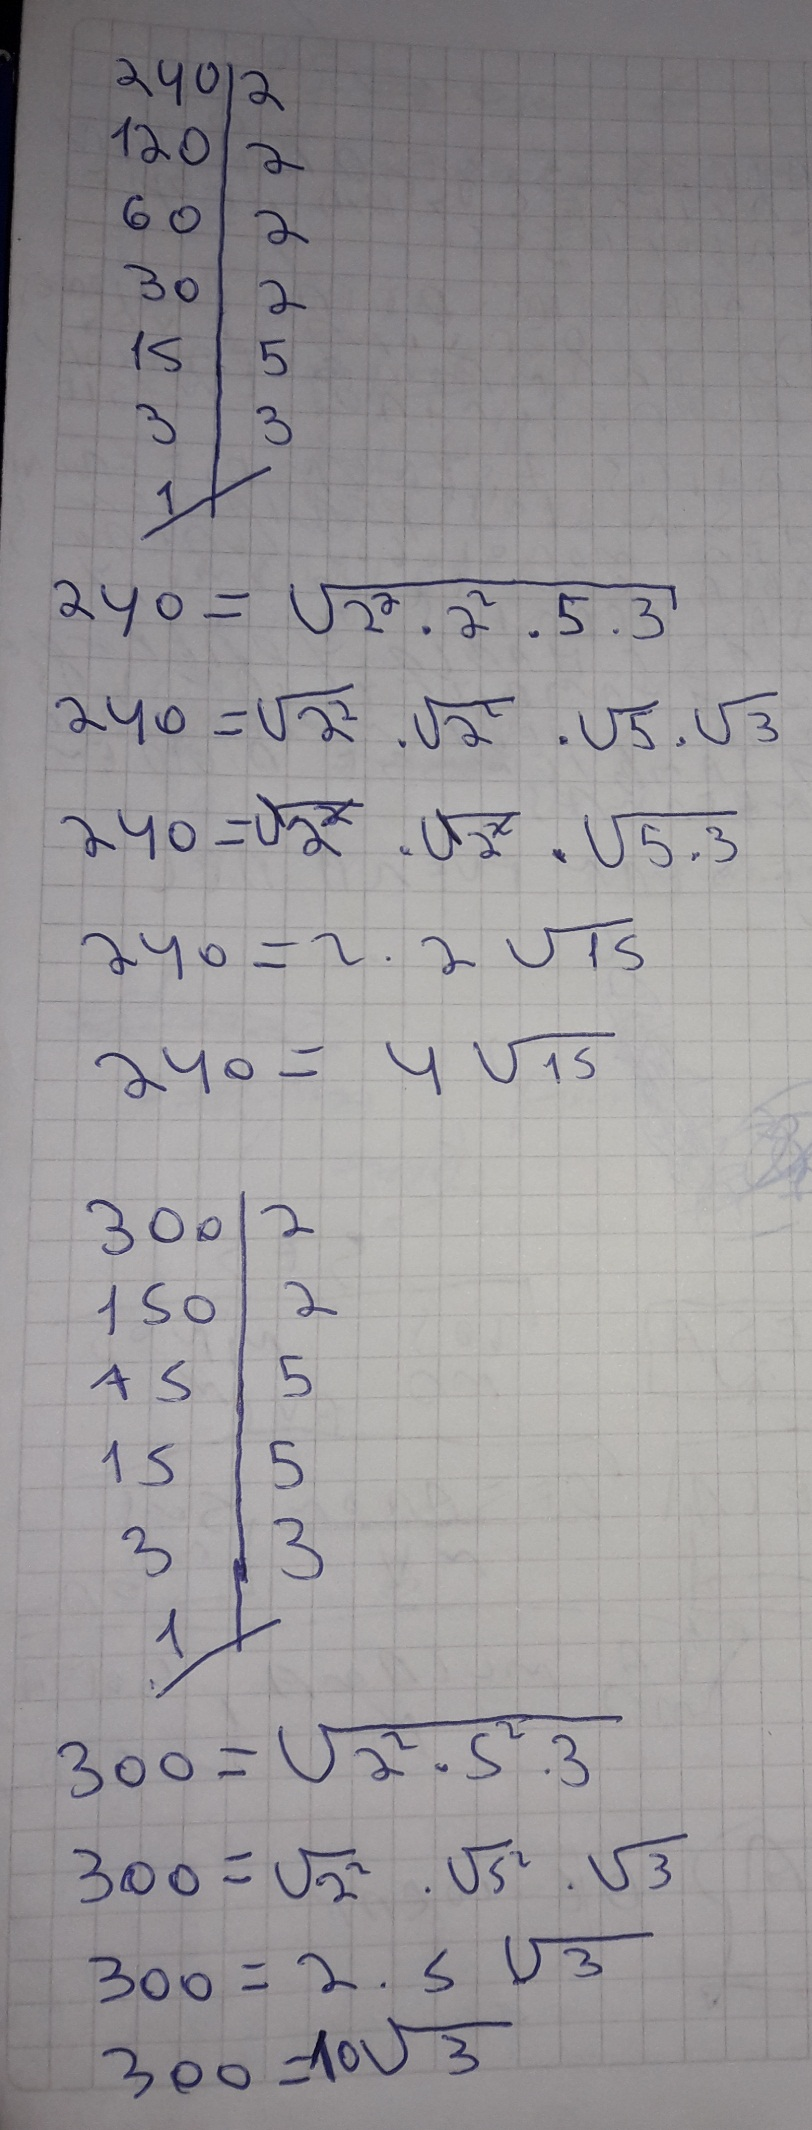 240|2
120|2
60|2
30|2
15|5
3|3
1
240 = √2² . 2² . 5 . 3
240 = √2² . √2² . √5 . √3
240 = √2² . √2² . √5 . 3
240 = 2 . 2 √15
240 = 4 √15
300|2
150|2
75|5
15|5
3|3
1
300 = √2² . 5² . 3
300 = √2² . √5² . √3
300 = 2 . 5 √3
300 = 10√3